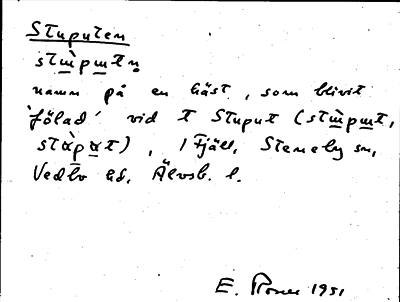 Stuputen
stɯ̀pɯtn̥
namn på en häst, som blivit
'fölad' vid t Stuput (stɯ̀pɯt,
stὰpαt), i Fjäll, Steneby sn,
Vedbo hd, Älvsb. l.
E. 1951